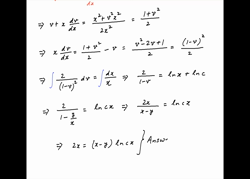 dx
⇒ v + x dv/dx = (x² + v²x²)/2x² = (1+v²)/2
⇒ x dv/dx = (1+v²)/2 - v = (v²-2v+1)/2 = (1-v)²/2
⇒ ∫ 2/(1-v)² dv = ∫ dx/x ⇒ 2/(1-v) = ln x + ln c
⇒ 2/(1 - y/x) = ln cx ⇒ 2x/(x-y) = ln cx
⇒ 2x = (x-y) ln cx } Answ